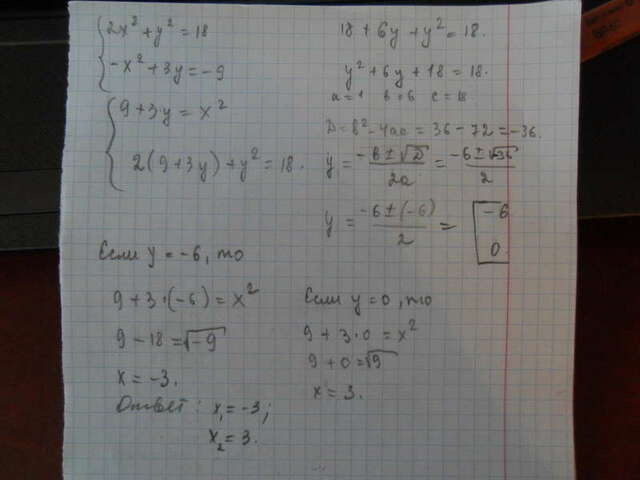 2x² + y² = 18
-x² + 3y = -9
9 + 3y = x²
2(9 + 3y) + y² = 18.
18 + 6y + y² = 18.
y² + 6y + 18 = 18.
a = 1 b = 6 c = 18.
D = b² - 4ac = 36 - 72 = -36.
y = (-b ± √D)/2a = (-6 ± √-36)/2
y = (-6 ± (-6))/2 = [-6
0.
Если y = -6, то
9 + 3·(-6) = x²
9 - 18 = √-9
x = -3.
Если y = 0, то
9 + 3·0 = x²
9 + 0 = √9
x = 3.
Ответ: x₁ = -3;
x₂ = 3.